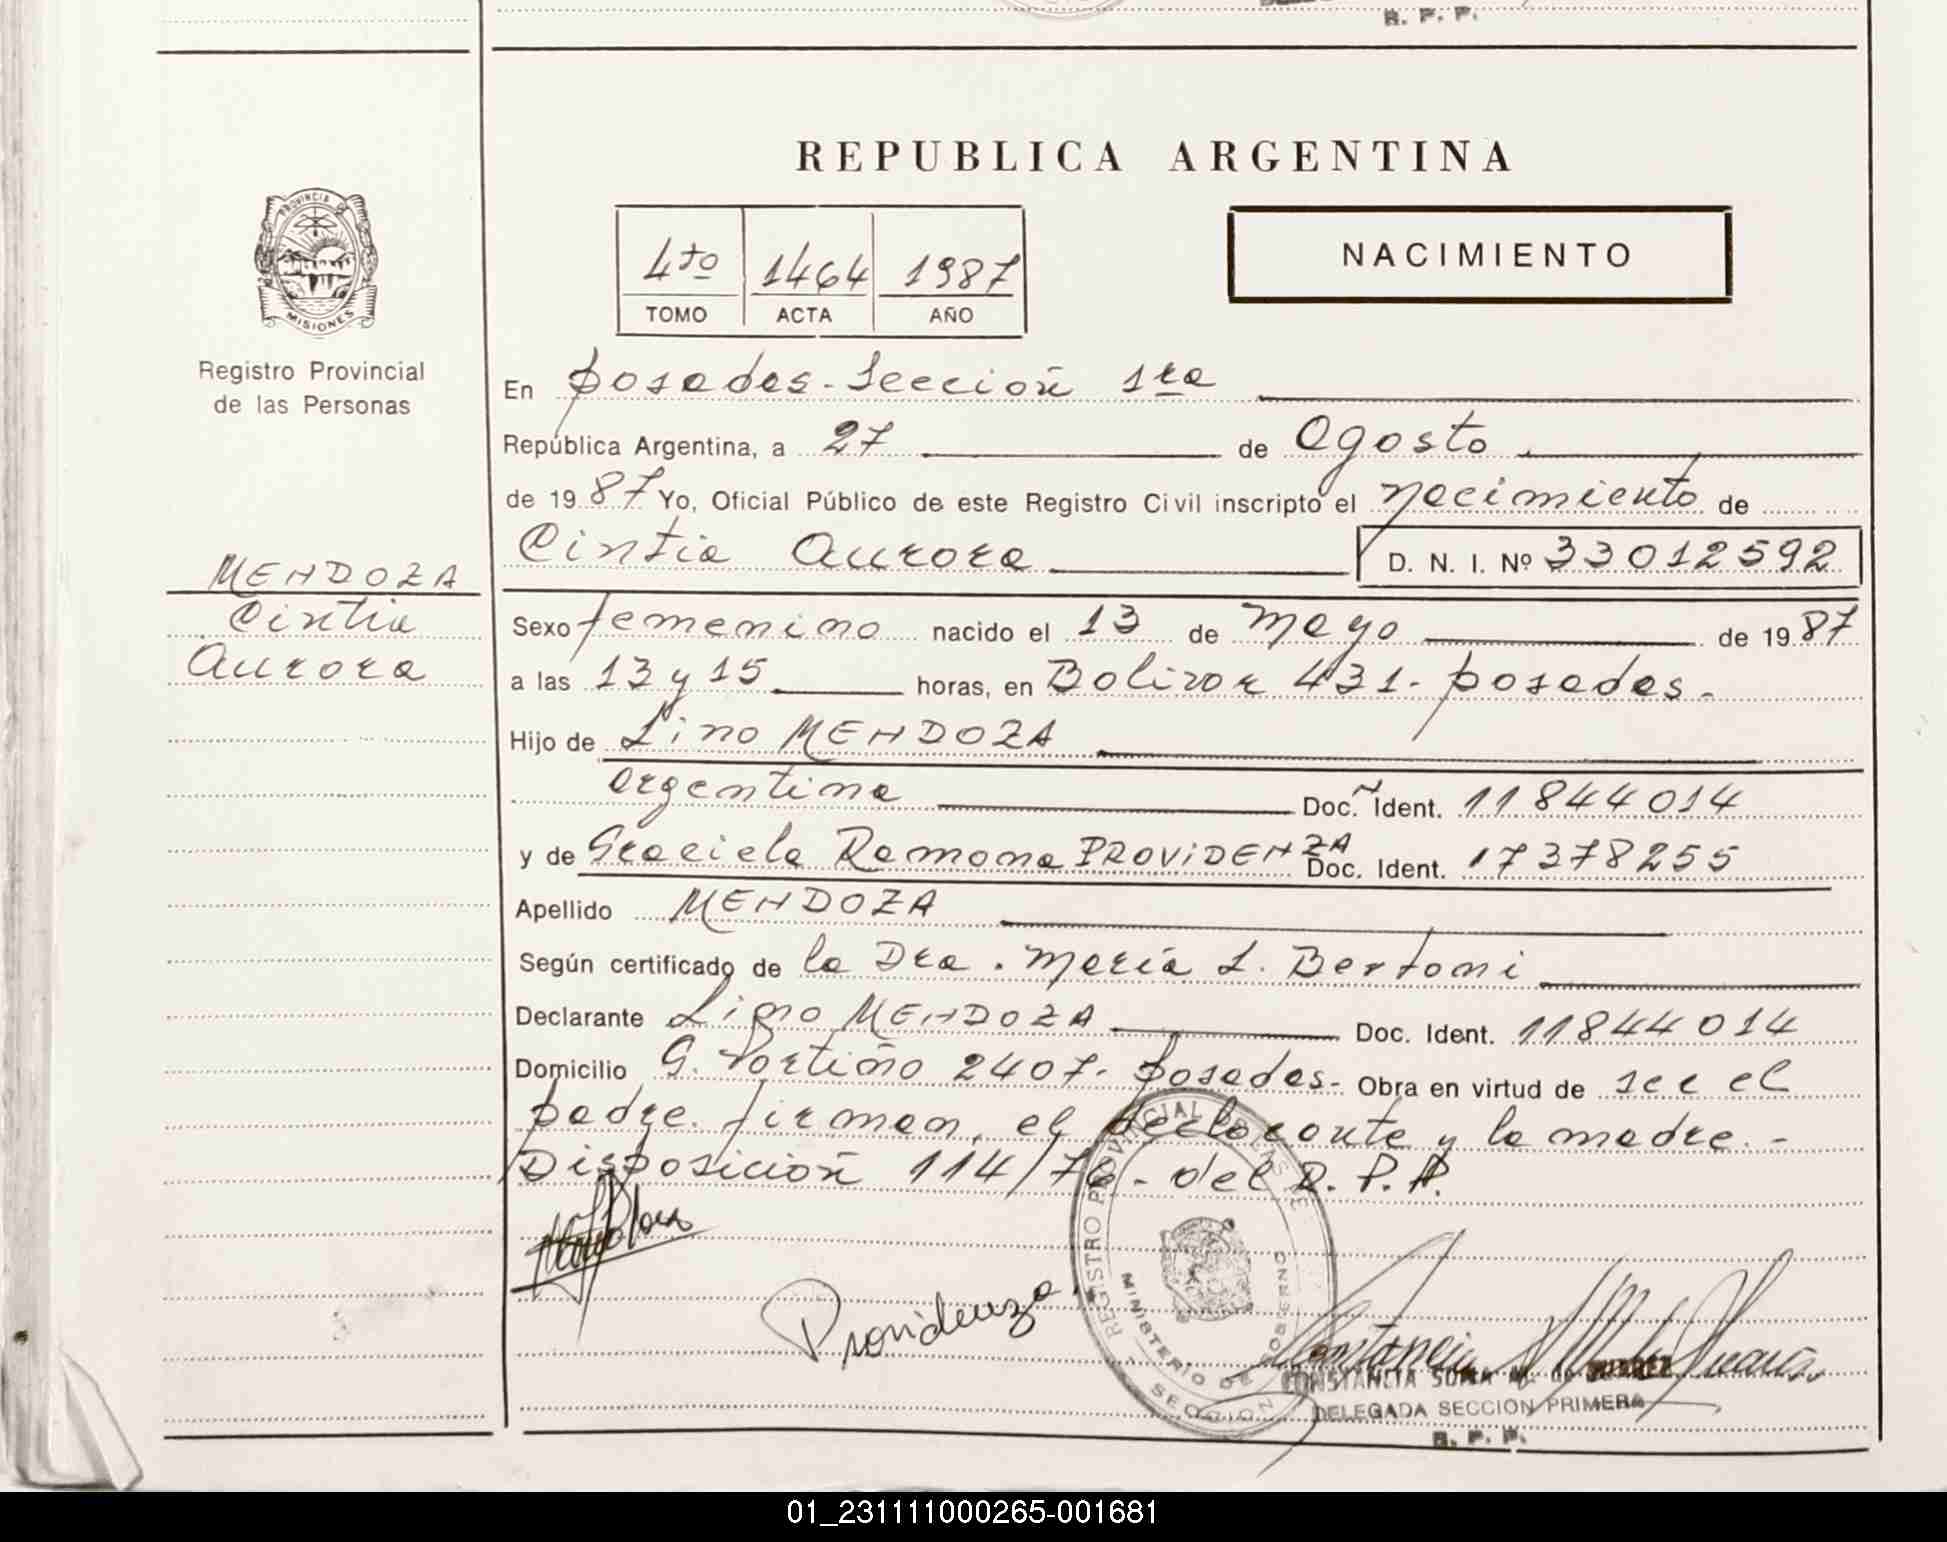 R. P. P.
REPUBLICA ARGENTINA
PROVINCIA DE
MISIONES
Registro Provincial
de las Personas
4to 1464 1987
TOMO ACTA AÑO
NACIMIENTO
En Posadas - Sección 1ra
República Argentina, a 27 de Agosto
de 1987 Yo, Oficial Público de este Registro Civil inscripto el nacimiento de
Cintia Aurora D. N. I. Nº 33012592
MENDOZA
Cintia
Aurora
Sexo femenino nacido el 13 de Mayo de 1987
a las 13 y 15 horas, en Bolivar 431 - Posadas -
Hijo de Lino MENDOZA
argentina Doc. Ident. 11844014
y de Graciela Ramona PROVIDENZA Doc. Ident. 17378255
Apellido MENDOZA
Según certificado de la Dra. María L. Bertoni
Declarante Lino MENDOZA Doc. Ident. 11844014
Domicilio G. Portiño 2407 - Posadas - Obra en virtud de ser el
padre. firman, el declarante y la madre. -
Disposición 114/76 - del R. P. P.
REGISTRO PROVINCIAL DE LAS PE
MINISTERIO DE GOBIERNO
SECCION
Providenza
CONSTANCIA SONIA M. de SUAREZ
DELEGADA SECCION PRIMERA
R. P. P.
01_231111000265-001681